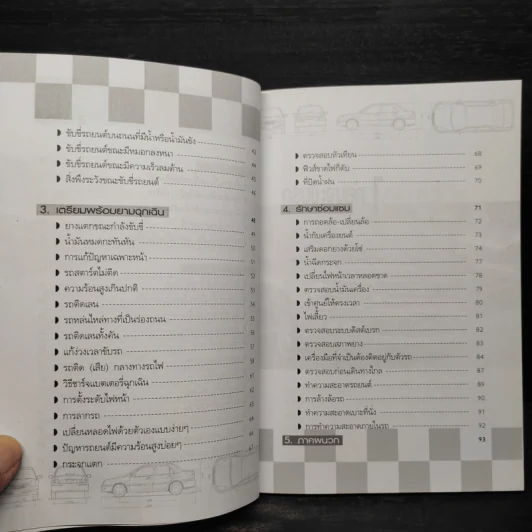 ขับขี่รถยนต์บนถนนที่มีน้ำหรือน้ำมันขัง
ขับขี่รถยนต์ขณะมีหมอกลงหนา
ขับขี่รถยนต์ขณะมีความเร็วลมต้าน
สิ่งพึงระวังขณะขับขี่รถยนต์
3. เตรียมพร้อมยามฉุกเฉิน
ยางแตกขณะกำลังขับขี่
น้ำมันหมดกะทันหัน
การแก้ปัญหาเฉพาะหน้า
รถสตาร์ตไม่ติด
ความร้อนสูงเกินปกติ
รถติดเลน
รถหล่นไหล่ทางที่เป็นร่องถนน
รถติดเลนทั้งคัน
แก้ง่วงเวลาขับรถ
รถติด (เสีย) กลางทางรถไฟ
วิธีชาร์จแบตเตอรี่ฉุกเฉิน
การตั้งระดับไฟหน้า
การลากรถ
เปลี่ยนหลอดไฟด้วยตัวเองแบบง่ายๆ
ปัญหารถยนต์มีความร้อนสูงบ่อยๆ
กระจกแตก
ตรวจสอบหัวเทียน 68
ฟิวส์ขาดไฟก็ดับ 69
ที่ปัดน้ำฝน 70
4. รักษาซ่อมแซม 71
การถอดล้อ-เปลี่ยนล้อ 72
น้ำกับเครื่องยนต์ 73
เสริมดอกยางด้วยโซ่ 74
น้ำฉีดกระจก 77
เปลี่ยนไฟหน้าเวลาหลอดขาด 78
ตรวจสอบน้ำมันเครื่อง 79
เข้าศูนย์ให้ตรงเวลา 80
ไฟเลี้ยว 81
ตรวจสอบระบบดิสค์เบรก 82
ตรวจสอบสภาพยาง 83
เครื่องมือที่จำเป็นต้องติดอยู่กับตัวรถ 84
ตรวจสอบก่อนเดินทางไกล 87
ทำความสะอาดรถยนต์ 88
การล้างล้อรถ 90
ทำความสะอาดเบาะที่นั่ง 91
การทำความสะอาดภายในรถ 92
5. ภาคผนวก 93